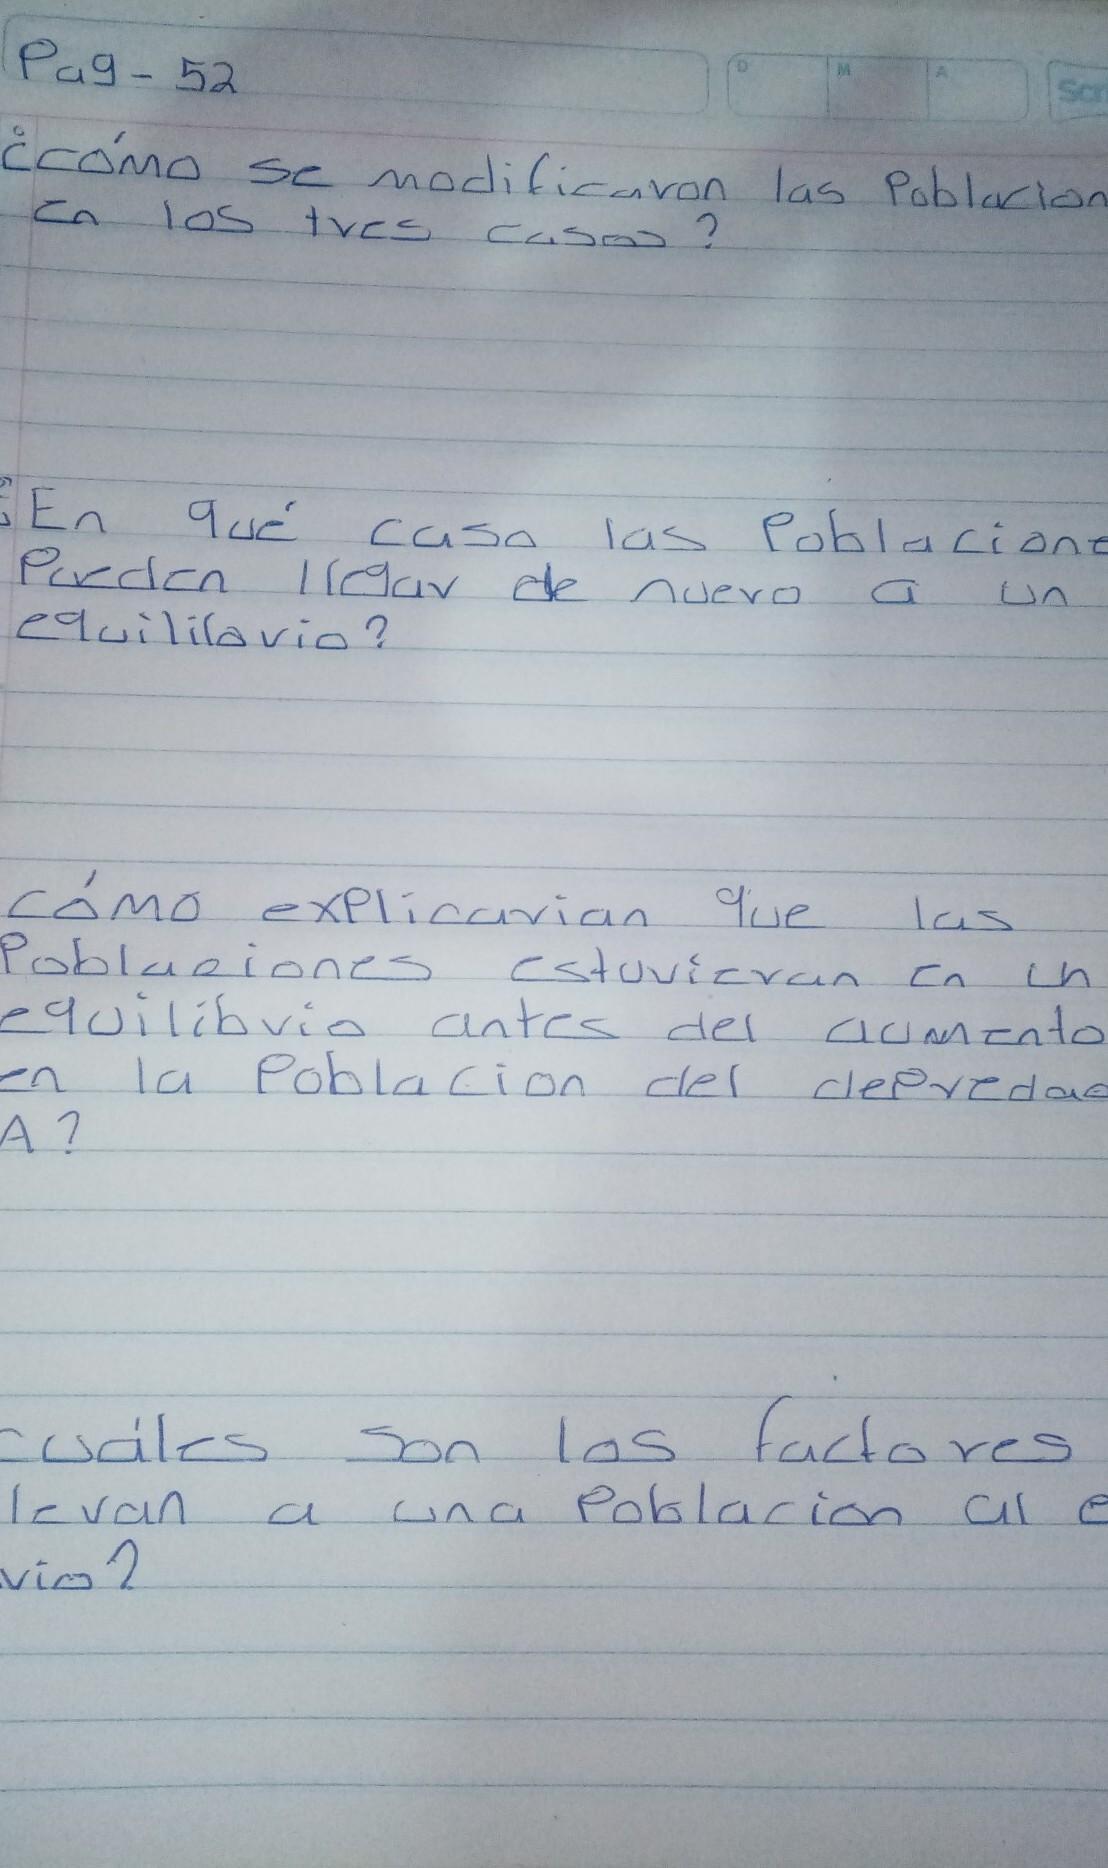 Pag - 52
D M A Scr
¿cómo se modificaron las Poblacion
en los tres casos?
¿En qué caso las Poblacione
Pueden llegar de nuevo a un
equilibrio?
cómo explicarian que las
Poblaciones estuvieran en un
equilibrio antes del aumento
en la Poblacion del depredad
A?
cuáles son los factores
levan a una Poblacion al e
vio?